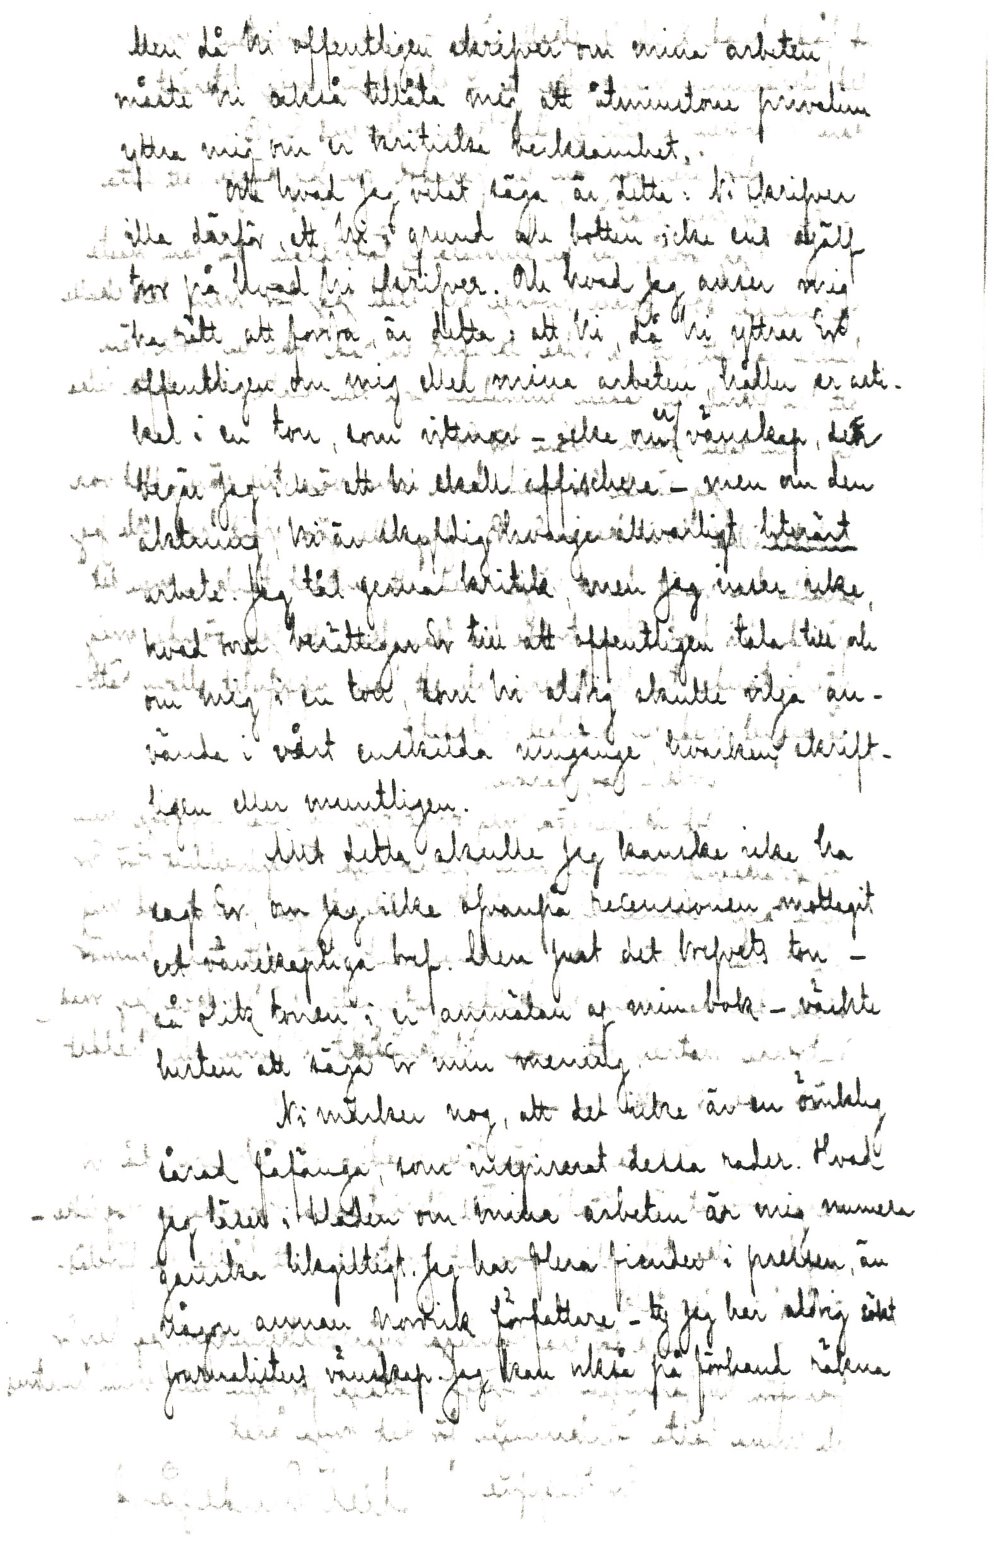 Men då Ni offentligen skrifver om mina arbeten,
måste Ni också tillåta mig att åtminstone privatim
yttra mig om er kritiska verksamhet.
Och hvad jag velat säga är detta: Ni skrifver
illa därför att Ni i grund och botten icke ens själf
tror på hvad Ni skrifver. Och hvad jag anser mig
ha rätt att fordra är detta: att Ni, då Ni yttrar Er
offentligen om mig eller mina arbeten, håller er arti-
kel i en ton, som vittnar – icke om en vänskap, den
begär jag icke att Ni skall affischera – men om den
aktning Ni är skyldig hvarje allvarligt literärt
arbete. Jag tål gerna kritik, men jag inser icke,
hvad som berättigar Er till att offentligen tala till och
om mig i en ton, som Ni aldrig skulle vilja an-
vända i vårt enskilda umgänge, hvarken skrift-
ligen eller muntligen.
Allt detta skulle jag kanske icke ha
sagt Er, om jag icke ofvanpå recensionen mottagit
ert vänskapliga bref. Men just det brefvets ton –
så olik tonen i er anmälan af min bok – väckte
lusten att säga Er min mening.
Ni märker nog, att det icke är en ömklig
sårad fåfänga, som inspirerat dessa rader. Hvad
jag läser i bladen om mina arbeten är mig numera
ganska likgiltigt. Jag har flera fiender i pressen, än
någon annan nordisk författare – ty jag har aldrig sökt
journalisters vänskap. Jag kan också på förhand räkna